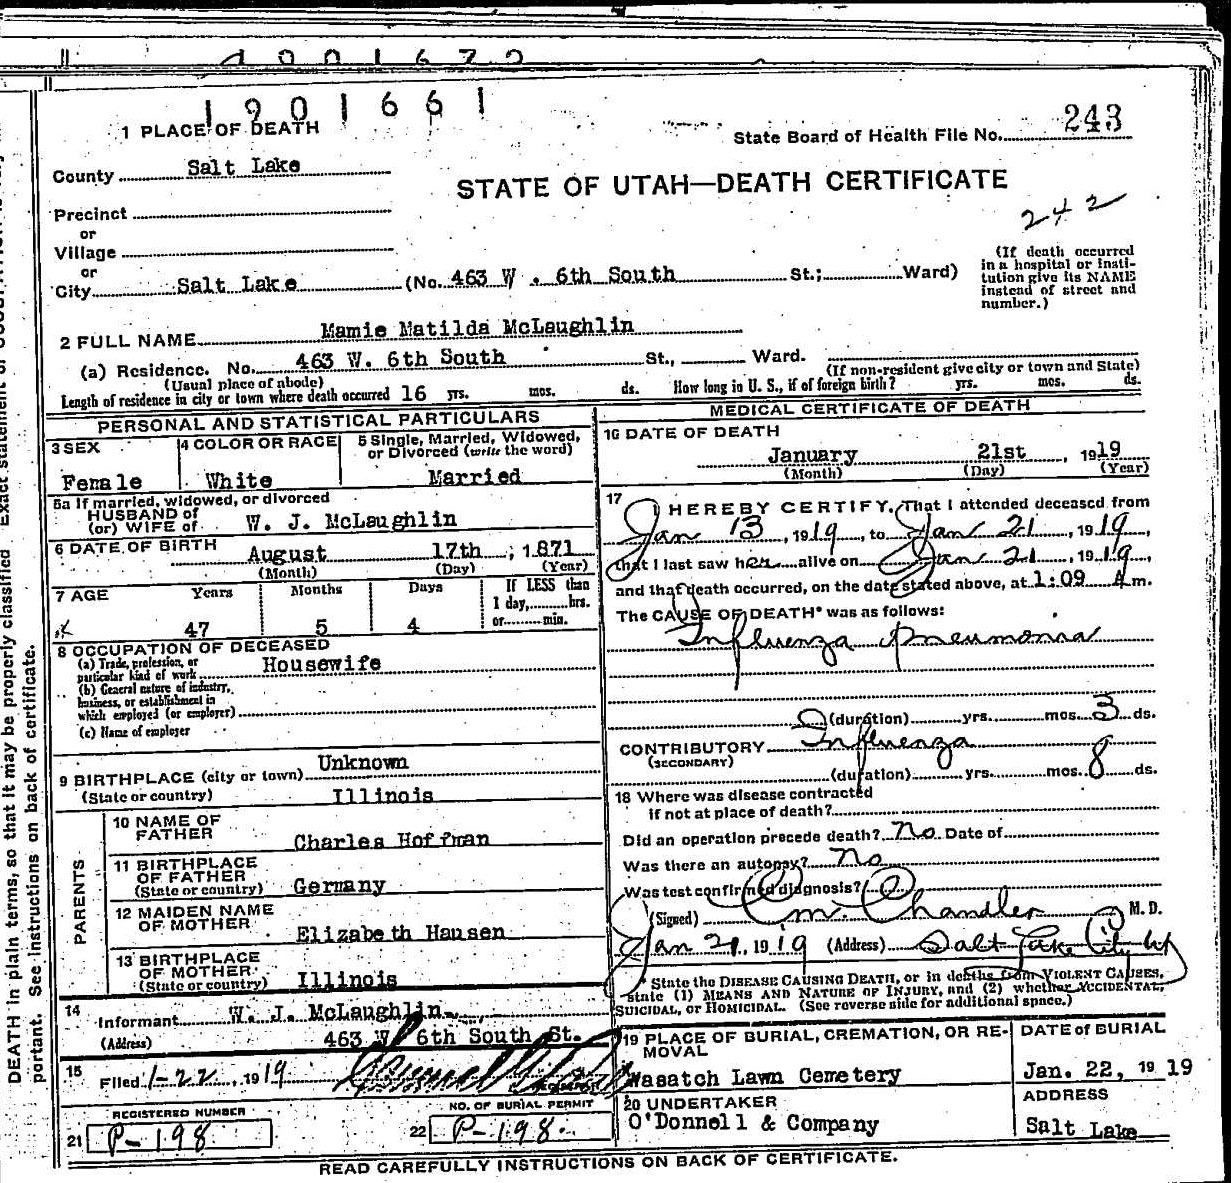 1901661
1 PLACE OF DEATH
State Board of Health File No. 243
County Salt Lake
STATE OF UTAH—DEATH CERTIFICATE
242
Precinct
or
Village
or
City Salt Lake (No. 463 W. 6th South St.; Ward)
(If death occurred
in a hospital or insti-
tution give its NAME
instead of street and
number.)
2 FULL NAME Mamie Matilda McLaughlin
(a) Residence. No. 463 W. 6th South St., Ward.
(Usual place of abode) (If non-resident give city or town and State)
Length of residence in city or town where death occurred 16 yrs. mos. ds. How long in U. S., if of foreign birth? yrs. mos. ds.
PERSONAL AND STATISTICAL PARTICULARS
3 SEX
Female
4 COLOR OR RACE
White
5 Single, Married, Widowed,
or Divorced (write the word)
Married
5a If married, widowed, or divorced
HUSBAND of
(or) WIFE of W. J. McLaughlin
6 DATE OF BIRTH August 17th, 1871
(Month) (Day) (Year)
7 AGE Years Months Days If LESS than
1 day, hrs.
or min.
47 5 4
8 OCCUPATION OF DECEASED
(a) Trade, profession, or
particular kind of work Housewife
(b) General nature of industry,
business, or establishment in
which employed (or employer)
(c) Name of employer
9 BIRTHPLACE (city or town) Unknown
(State or country) Illinois
PARENTS
10 NAME OF
FATHER Charles Hoffman
11 BIRTHPLACE
OF FATHER
(State or country) Germany
12 MAIDEN NAME
OF MOTHER Elizabeth Hausen
13 BIRTHPLACE
OF MOTHER
(State or country) Illinois
14
Informant W. J. McLaughlin
(Address) 463 W 6th South St.
15
Filed 1-22, 1919
REGISTERED NUMBER
21 P-198
NO. OF BURIAL PERMIT
22 P-198.
MEDICAL CERTIFICATE OF DEATH
16 DATE OF DEATH
January 21st, 1919
(Month) (Day) (Year)
17
I HEREBY CERTIFY, That I attended deceased from
Jan 13, 1919, to Jan 21, 1919,
that I last saw her alive on Jan 21, 1919,
and that death occurred, on the date stated above, at 1:09 A m.
The CAUSE OF DEATH* was as follows:
Influenza Pneumonia
(duration) yrs. mos. 3 ds.
CONTRIBUTORY Influenza
(SECONDARY)
(duration) yrs. mos. 8 ds.
18 Where was disease contracted
if not at place of death?
Did an operation precede death? no Date of
Was there an autopsy? no
Was test confirmed diagnosis?
(Signed) C. M. Chandler M. D.
Jan 21, 1919 (Address) Salt Lake City Ut
* State the DISEASE CAUSING DEATH, or in deaths from VIOLENT CAUSES,
state (1) MEANS AND NATURE OF INJURY, and (2) whether ACCIDENTAL,
SUICIDAL, or HOMICIDAL. (See reverse side for additional space.)
19 PLACE OF BURIAL, CREMATION, OR RE-
MOVAL
Wasatch Lawn Cemetery
DATE of BURIAL
Jan. 22, 1919
20 UNDERTAKER
O'Donnell & Company
ADDRESS
Salt Lake
READ CAREFULLY INSTRUCTIONS ON BACK OF CERTIFICATE.
DEATH in plain terms, so that it may be properly classified
portant. See instructions on back of certificate.